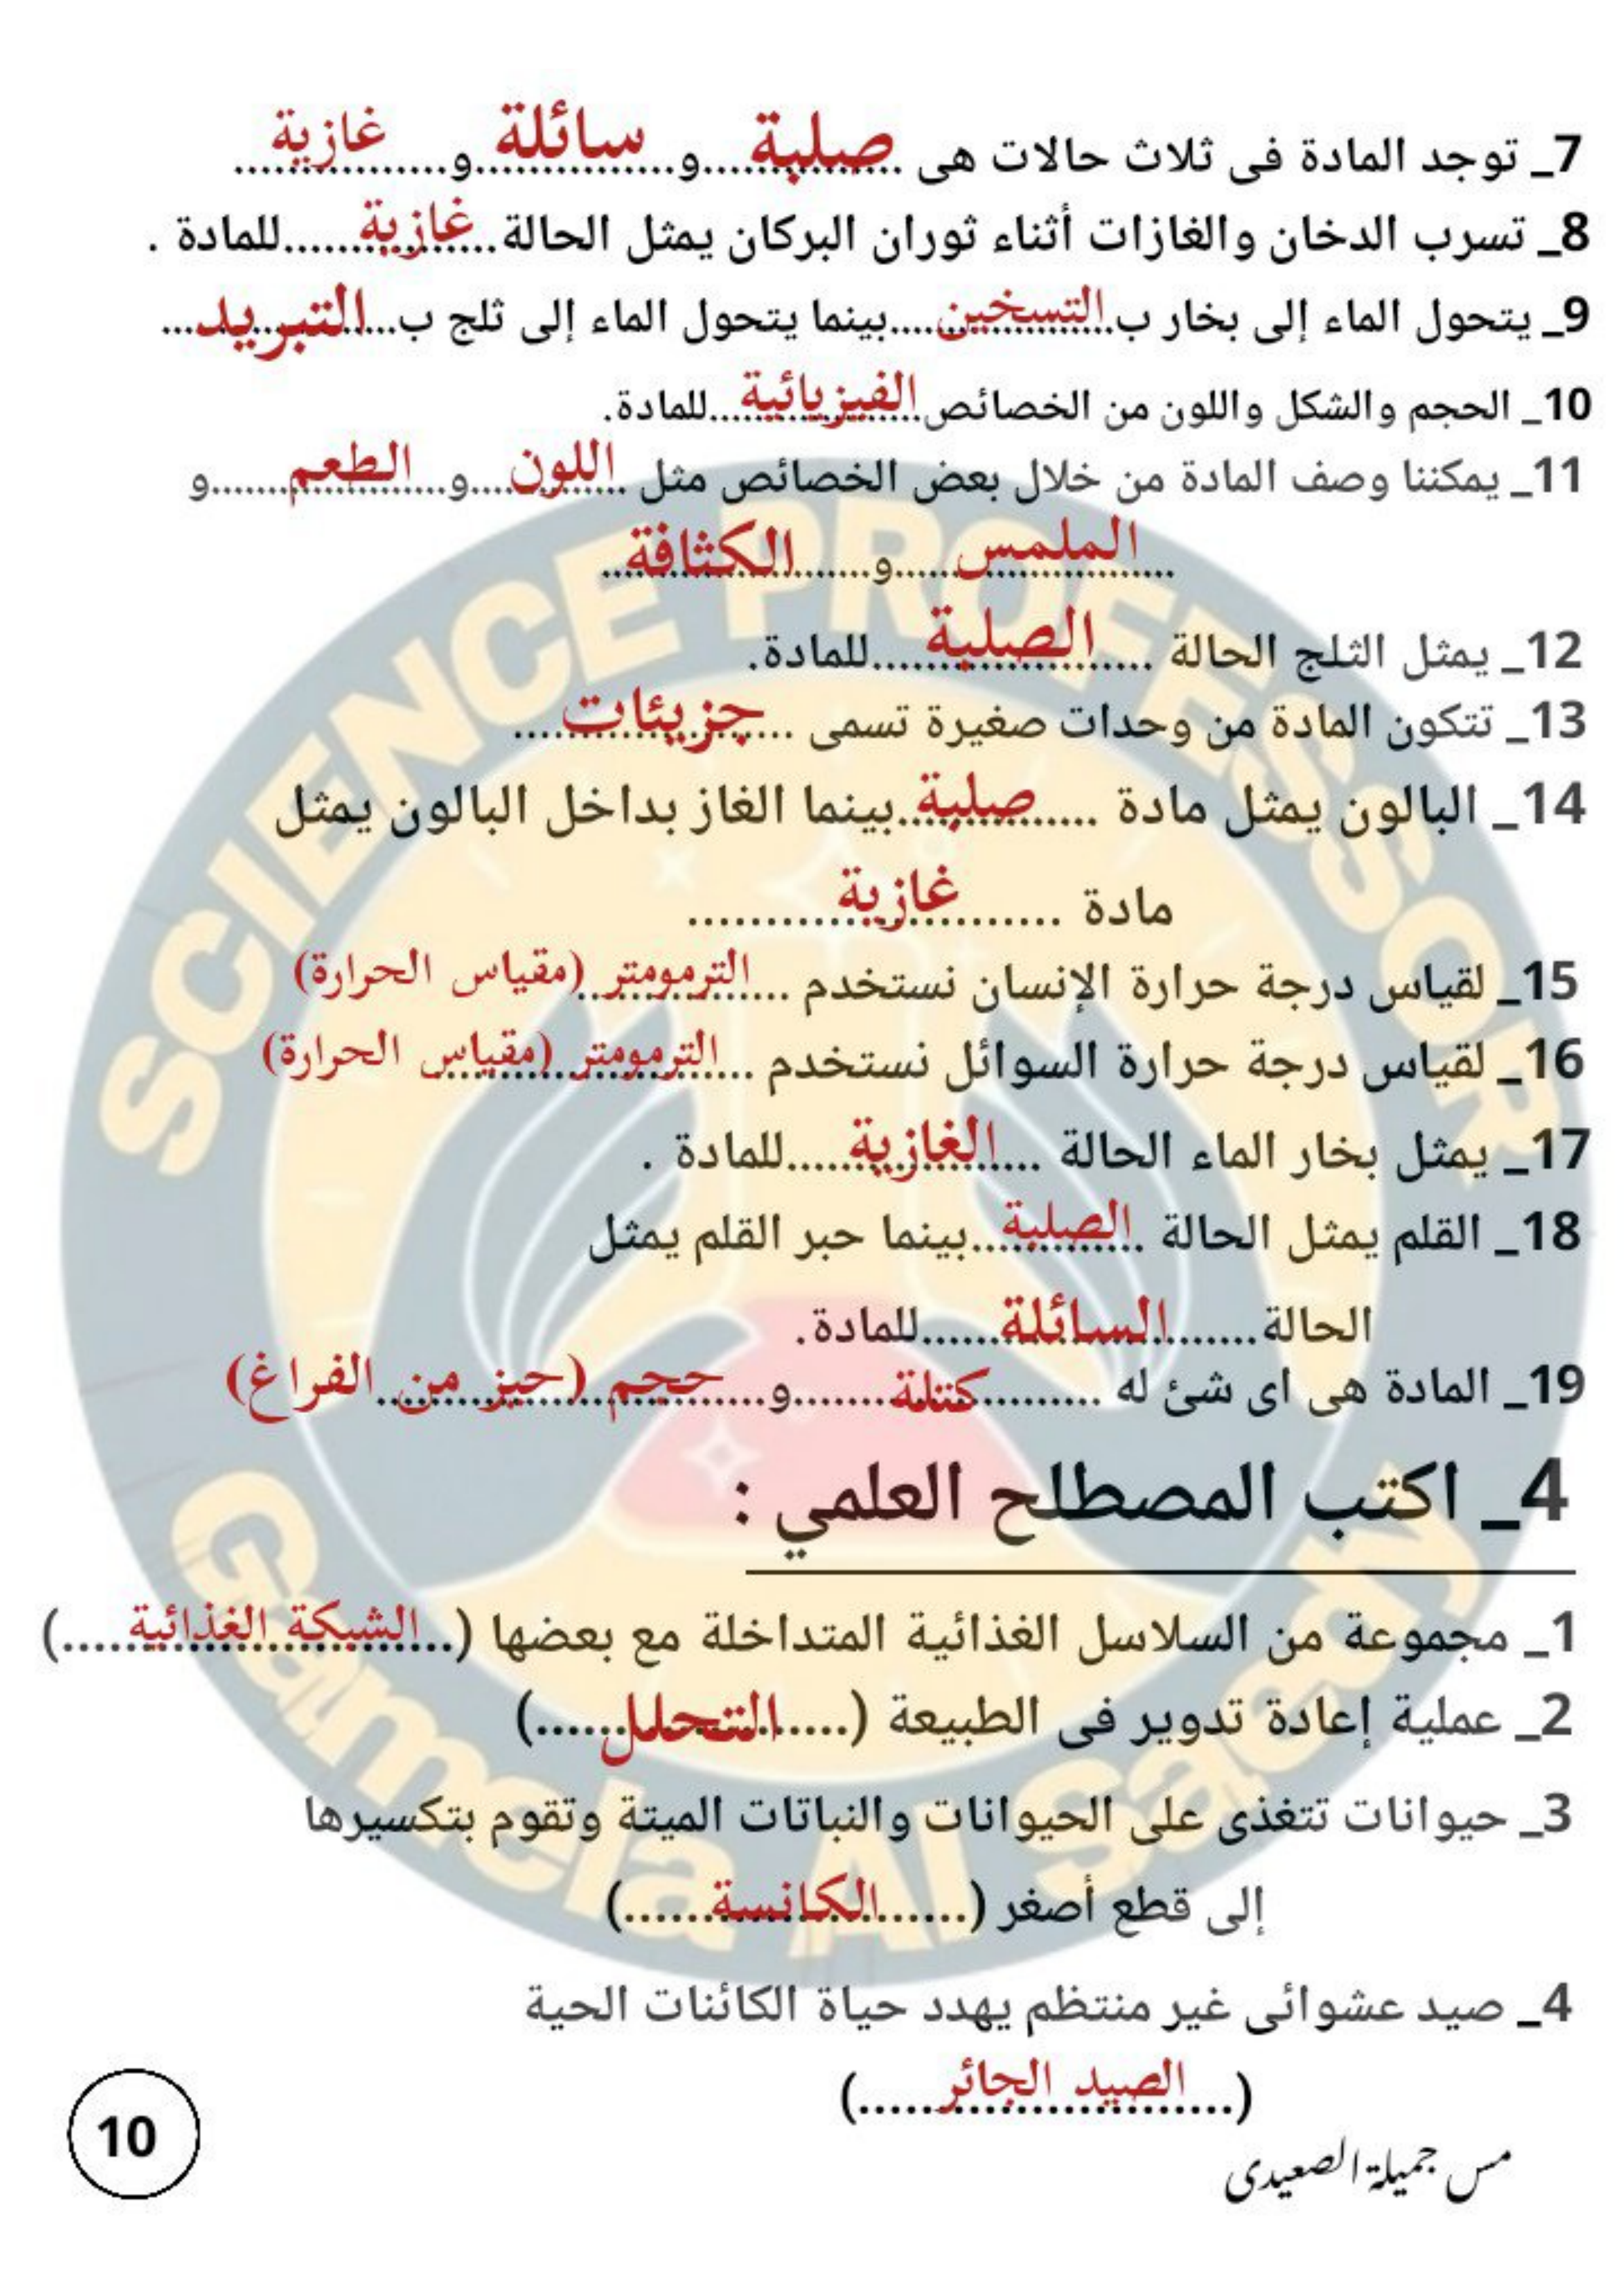 7_ توجد المادة فى ثلاث حالات هى ......صلبة......و......سائلة......و......غازية......
8_ تسرب الدخان والغازات أثناء ثوران البركان يمثل الحالة......غازية......للمادة .
9_ يتحول الماء إلى بخار ب......التسخين......بينما يتحول الماء إلى ثلج ب......التبريد......
10_ الحجم والشكل واللون من الخصائص......الفيزيائية......للمادة.
11_ يمكننا وصف المادة من خلال بعض الخصائص مثل ......اللون......و......الطعم......و
......الملمس......و......الكثافة......
12_ يمثل الثلج الحالة ......الصلبة......للمادة.
13_ تتكون المادة من وحدات صغيرة تسمى ......جزيئات......
14_ البالون يمثل مادة ......صلبة......بينما الغاز بداخل البالون يمثل
مادة ......غازية......
15_ لقياس درجة حرارة الإنسان نستخدم ......الترمومتر (مقياس الحرارة)
16_ لقياس درجة حرارة السوائل نستخدم ......الترمومتر (مقياس الحرارة)
17_ يمثل بخار الماء الحالة ......الغازية......للمادة .
18_ القلم يمثل الحالة ......الصلبة......بينما حبر القلم يمثل
الحالة......السائلة......للمادة.
19_ المادة هى اى شئ له ......كتلة......و......حجم (حيز من الفراغ)
4_ اكتب المصطلح العلمي :
1_ مجموعة من السلاسل الغذائية المتداخلة مع بعضها (......الشبكة الغذائية......)
2_ عملية إعادة تدوير فى الطبيعة (......التحلل......)
3_ حيوانات تتغذى على الحيوانات والنباتات الميتة وتقوم بتكسيرها
إلى قطع أصغر (......الكانسة......)
4_ صيد عشوائى غير منتظم يهدد حياة الكائنات الحية
(......الصيد الجائر......)
10
مس جميلة الصعيدى
SCIENCE PROFESSOR
Gamela Al Saedy